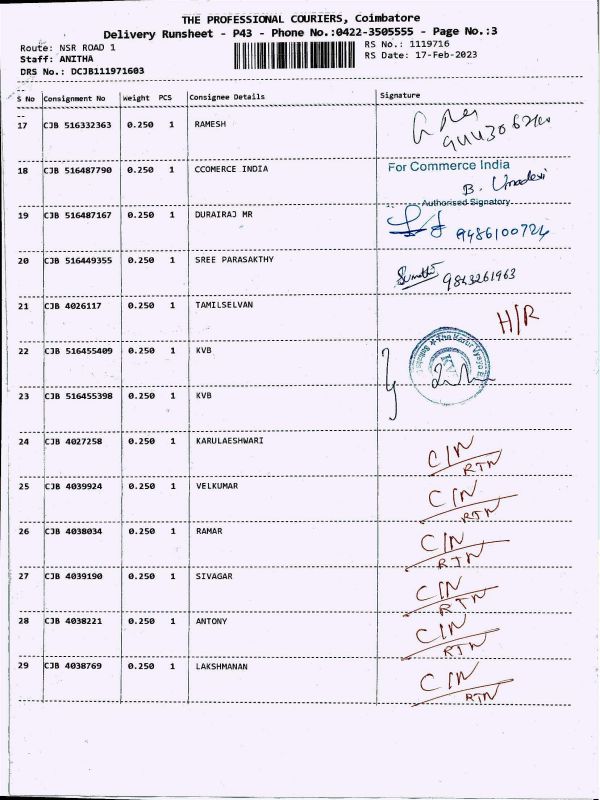 THE PROFESSIONAL COURIERS, Coimbatore
Delivery Runsheet - P43 - Phone No.:0422-3505555 - Page No.:3
Route: NSR ROAD 1
RS No.: 1119716
Staff: ANITHA
RS Date: 17-Feb-2023
DRS No.: DCJB111971603
S No Consignment No Weight PCS Consignee Details Signature
17 CJB 516332363 0.250 1 RAMESH
18 CJB 516487790 0.250 1 CCOMERCE INDIA For Commerce India
B. Umadevi
Authorised Signatory
19 CJB 516487167 0.250 1 DURAIRAJ MR
9486100724
20 CJB 516449355 0.250 1 SREE PARASAKTHY
Sumathi 9843261963
21 CJB 4026117 0.250 1 TAMILSELVAN H/R
22 CJB 516455409 0.250 1 KVB
23 CJB 516455398 0.250 1 KVB
24 CJB 4027258 0.250 1 KARULAESHWARI C/N
RTN
25 CJB 4039924 0.250 1 VELKUMAR C/N
RTN
26 CJB 4038034 0.250 1 RAMAR C/N
RTN
27 CJB 4039190 0.250 1 SIVAGAR C/N
RTN
28 CJB 4038221 0.250 1 ANTONY C/N
RTN
29 CJB 4038769 0.250 1 LAKSHMANAN C/N
RTN